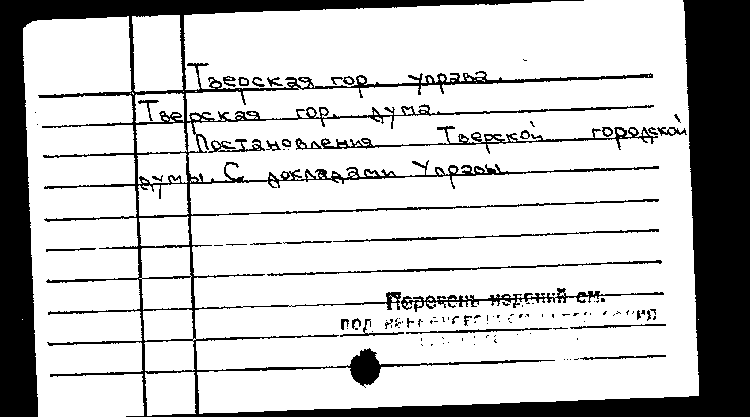 Тверская гор. управа.
Тверская гор. дума.
Постановления Тверской городской
думы. С докладами Управы.
Перечень изданий см.
под